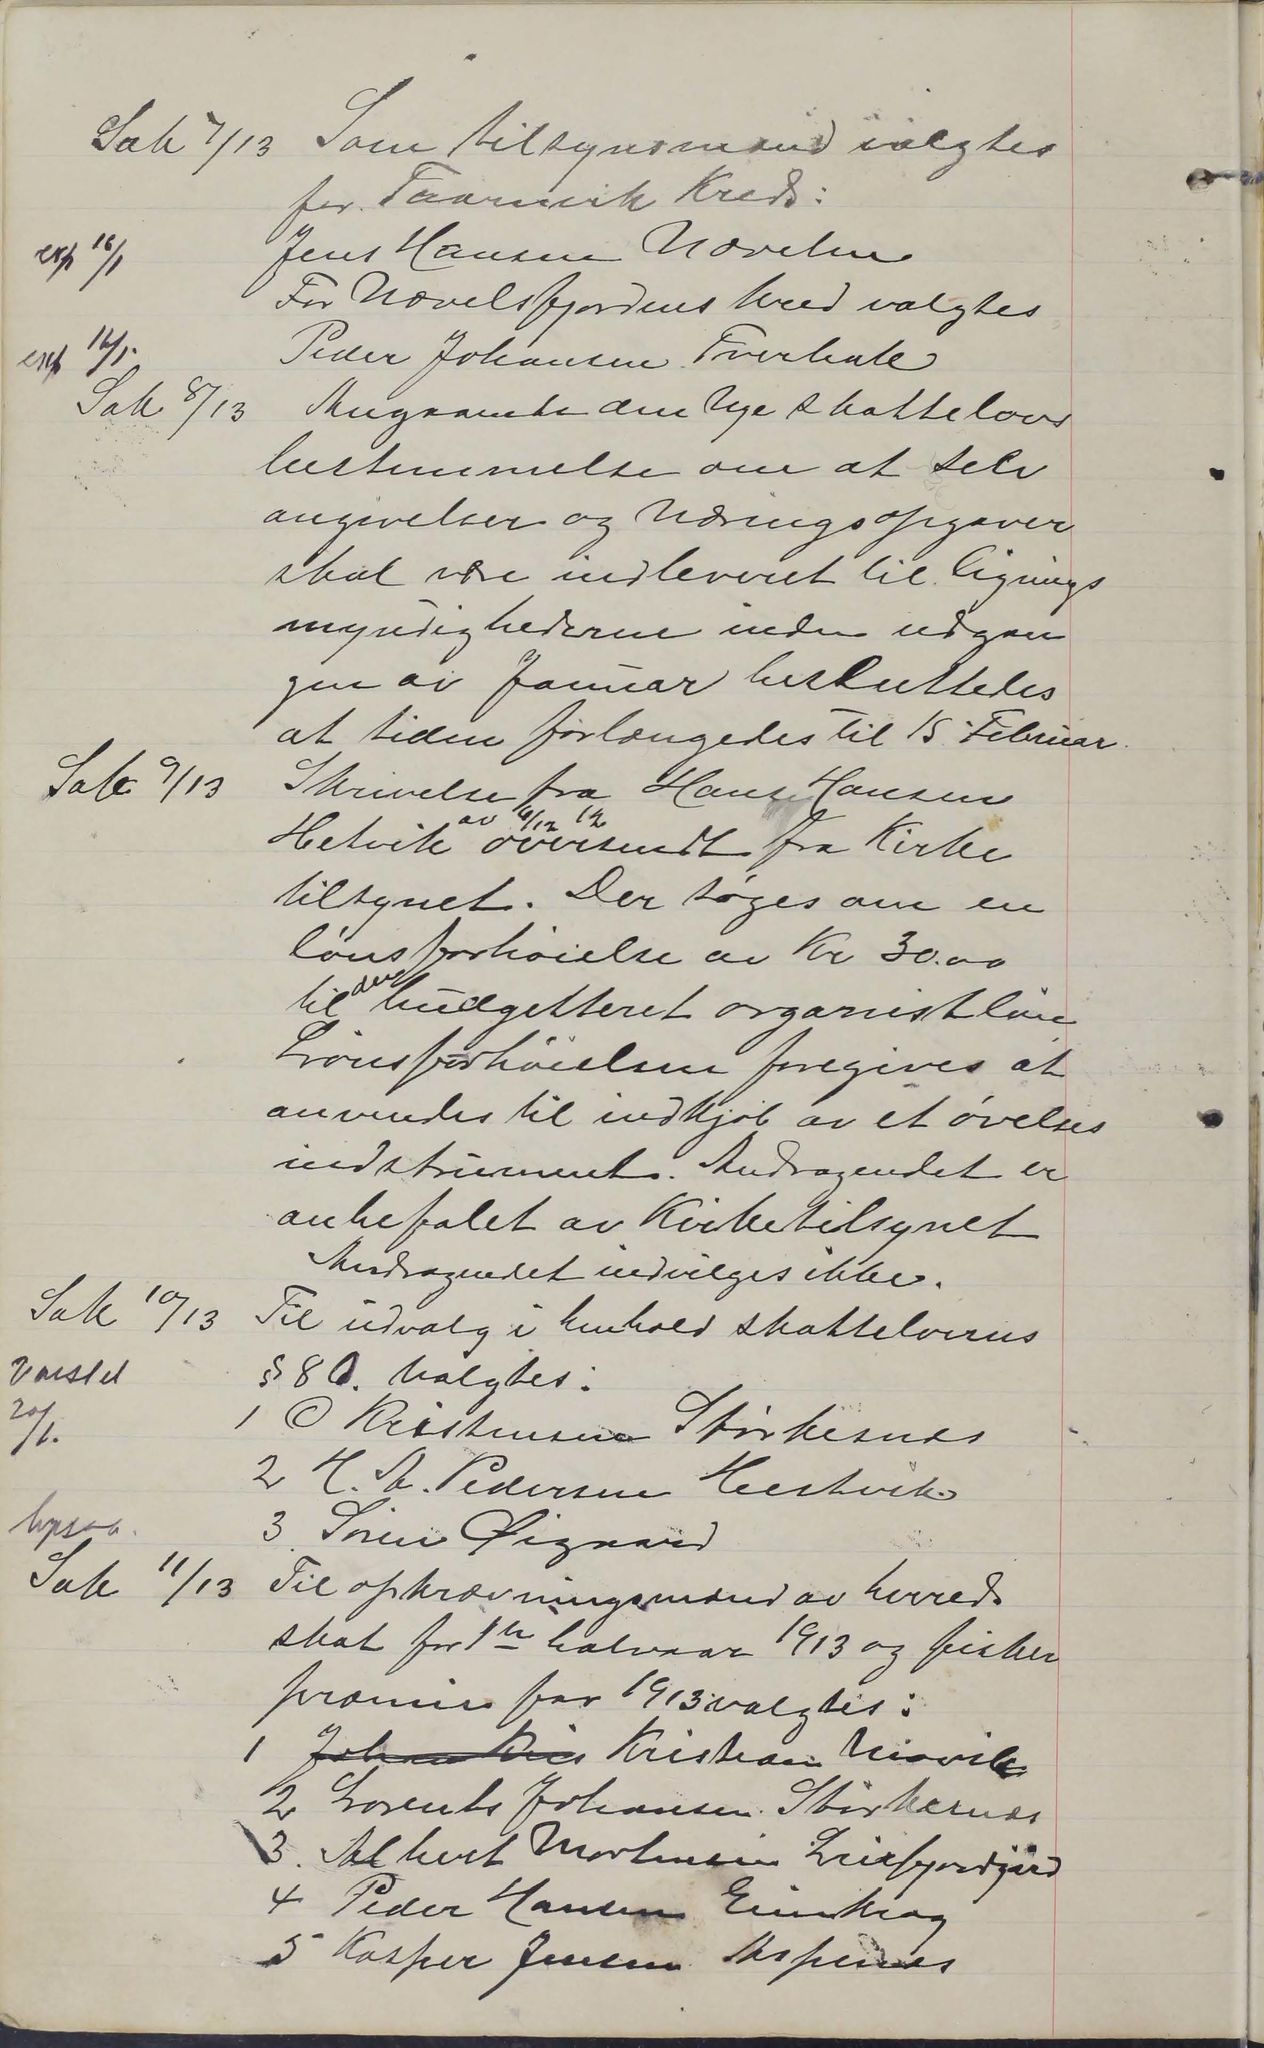 Sak 7/13 Som tilsynsmænd valgtes
for Taarnvik Kreds:
exp 16/1 Jens Hansen Nævelsn
For Nævelsfjordens kred valgtes
exp 16/1. Peder Johansen Tverbak
Sak 8/13 Angaaende den Nye skattelovs
bestemmelse om at selv
angivelser og Næringsopgaver
skal være indleveret til lignings
myndighederne inden udgan
gen av Januar besluttedes
at tiden forlængedes til 15 Februar.
Sak 9/13 Skrivelse fra Hans Hansen
Hetvik av 4/12 12 oversendt fra Kirke
tilsynet. Der søges om en
lønsforhøielse av Kr 30.00
til den budgetteret organistløn
Lønsforhøielsen foregives at
anvendes til indkjøb av et øvelses
indstrument. Andragendet er
anbefalet av Kirketilsynet
Andragendet indvilges ikke.
Sak 10/13 Til udvalg i henhold skattelovens
Varslet § 80. valgtes:
20/1. 1 C Kristensen Størkesnes
2 H. A. Pedersen Hestvik
3 Søren Øigaard
Sak 11/13 Til opkrævningsmænd av herreds
skat for 1ste halvaar 1913 og fisker
præmie for 1913 valgtes:
1 Kristian Misvik
2 Lorents Johansen Størkersnes
3. Albert Mortensen
4 Peder Hansen Einkrog
5 Kasper Jensen Aspenes